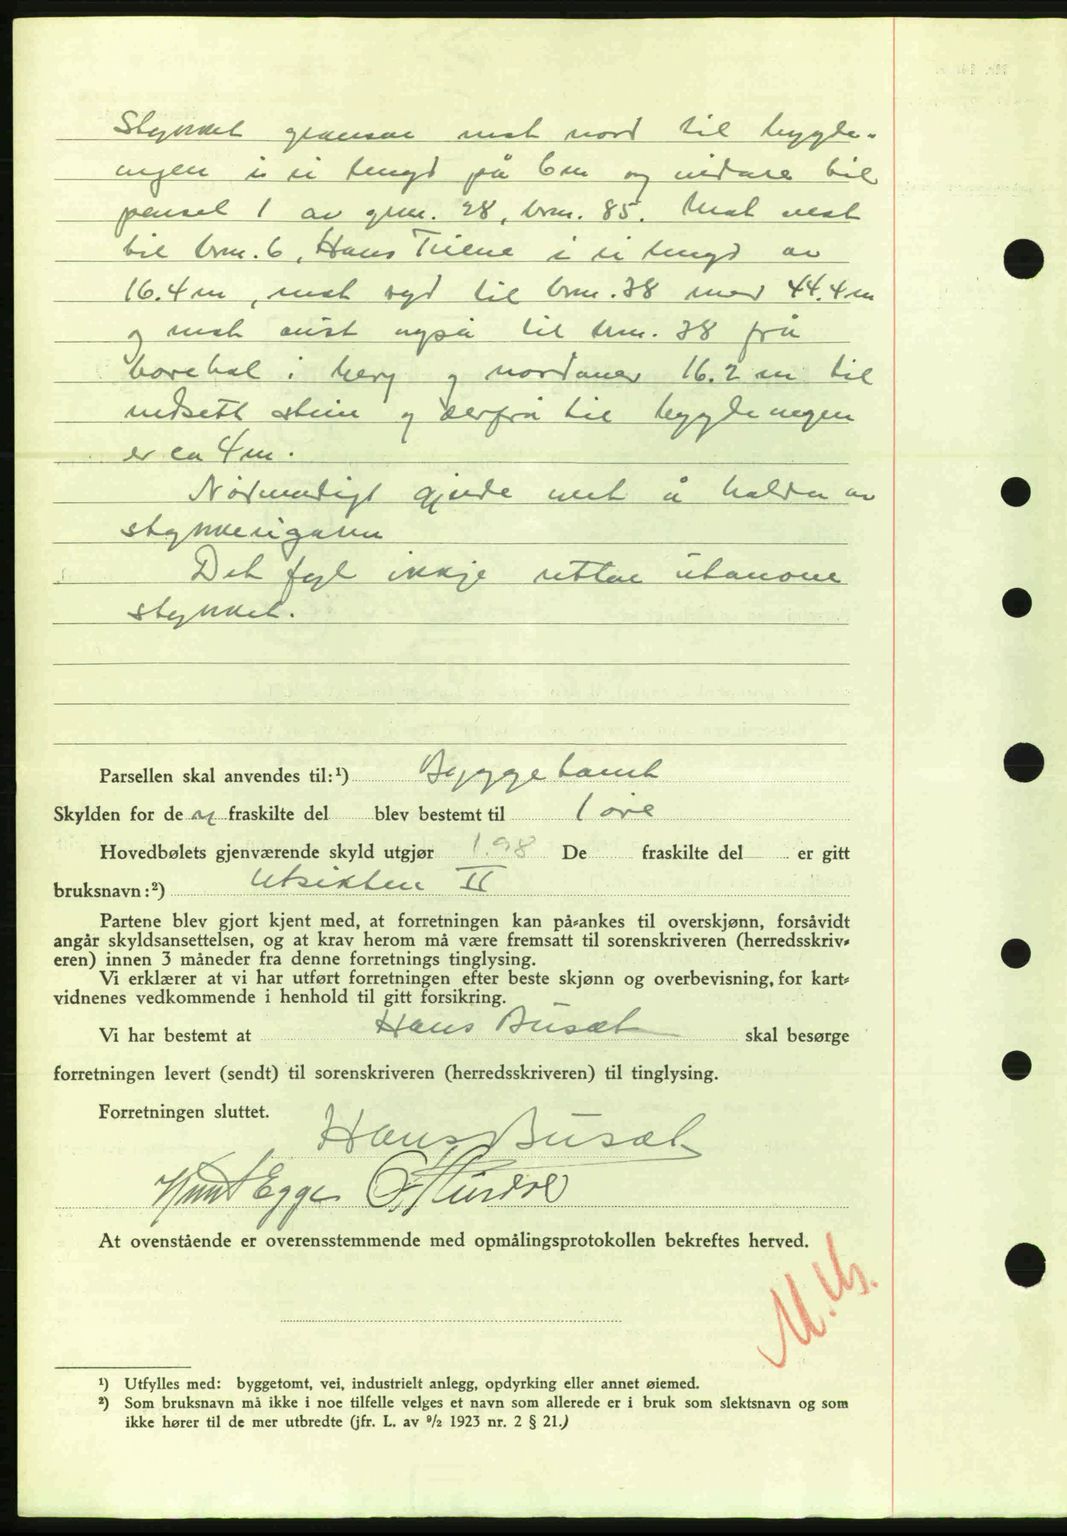 Stykket grensar mot nord til bygde-
vegen i ei lengd på 6 m og vidare til
parsel 1 av gnr. 28, brn. 85. Mot vest
til brn. 6, Hans i ei lengd av
16.4 m, mot syd til brn. 38 med 44.4 m
og mot aust også til brn. 38 frå
borehol i berg og nordover 16.2 m til
nedsett stein og derfrå til bygdevegen
er ca 4 m.
Nødvendigt gjerde vert å halda av
stykkeeigaren
Det fylgl ikkje rettar utanom
stykket.
Parsellen skal anvendes til:¹) Byggetomt
Skylden for de n fraskilte del blev bestemt til 1 øre
Hovedbølets gjenværende skyld utgjør 1.98 De fraskilte del er gitt
bruksnavn:²) Utsikten II
Partene blev gjort kjent med, at forretningen kan på-ankes til overskjønn, forsåvidt
angår skyldsansettelsen, og at krav herom må være fremsatt til sorenskriveren (herredsskriv-
eren) innen 3 måneder fra denne forretnings tinglysing.
Vi erklærer at vi har utført forretningen efter beste skjønn og overbevisning, for kart-
vidnenes vedkommende i henhold til gitt forsikring.
Vi har bestemt at Hans Busæt skal besørge
forretningen levert (sendt) til sorenskriveren (herredsskriveren) til tinglysing.
Forretningen sluttet.
Hans Busæt
Knut Egge
At ovenstående er overensstemmende med opmålingsprotokollen bekreftes herved.
¹) Utfylles med: byggetomt, vei, industrielt anlegg, opdyrking eller annet øiemed.
²) Som bruksnavn må ikke i noe tilfelle velges et navn som allerede er i bruk som slektsnavn og som
ikke hører til de mer utbredte (jfr. L. av 9/2 1923 nr. 2 § 21.)